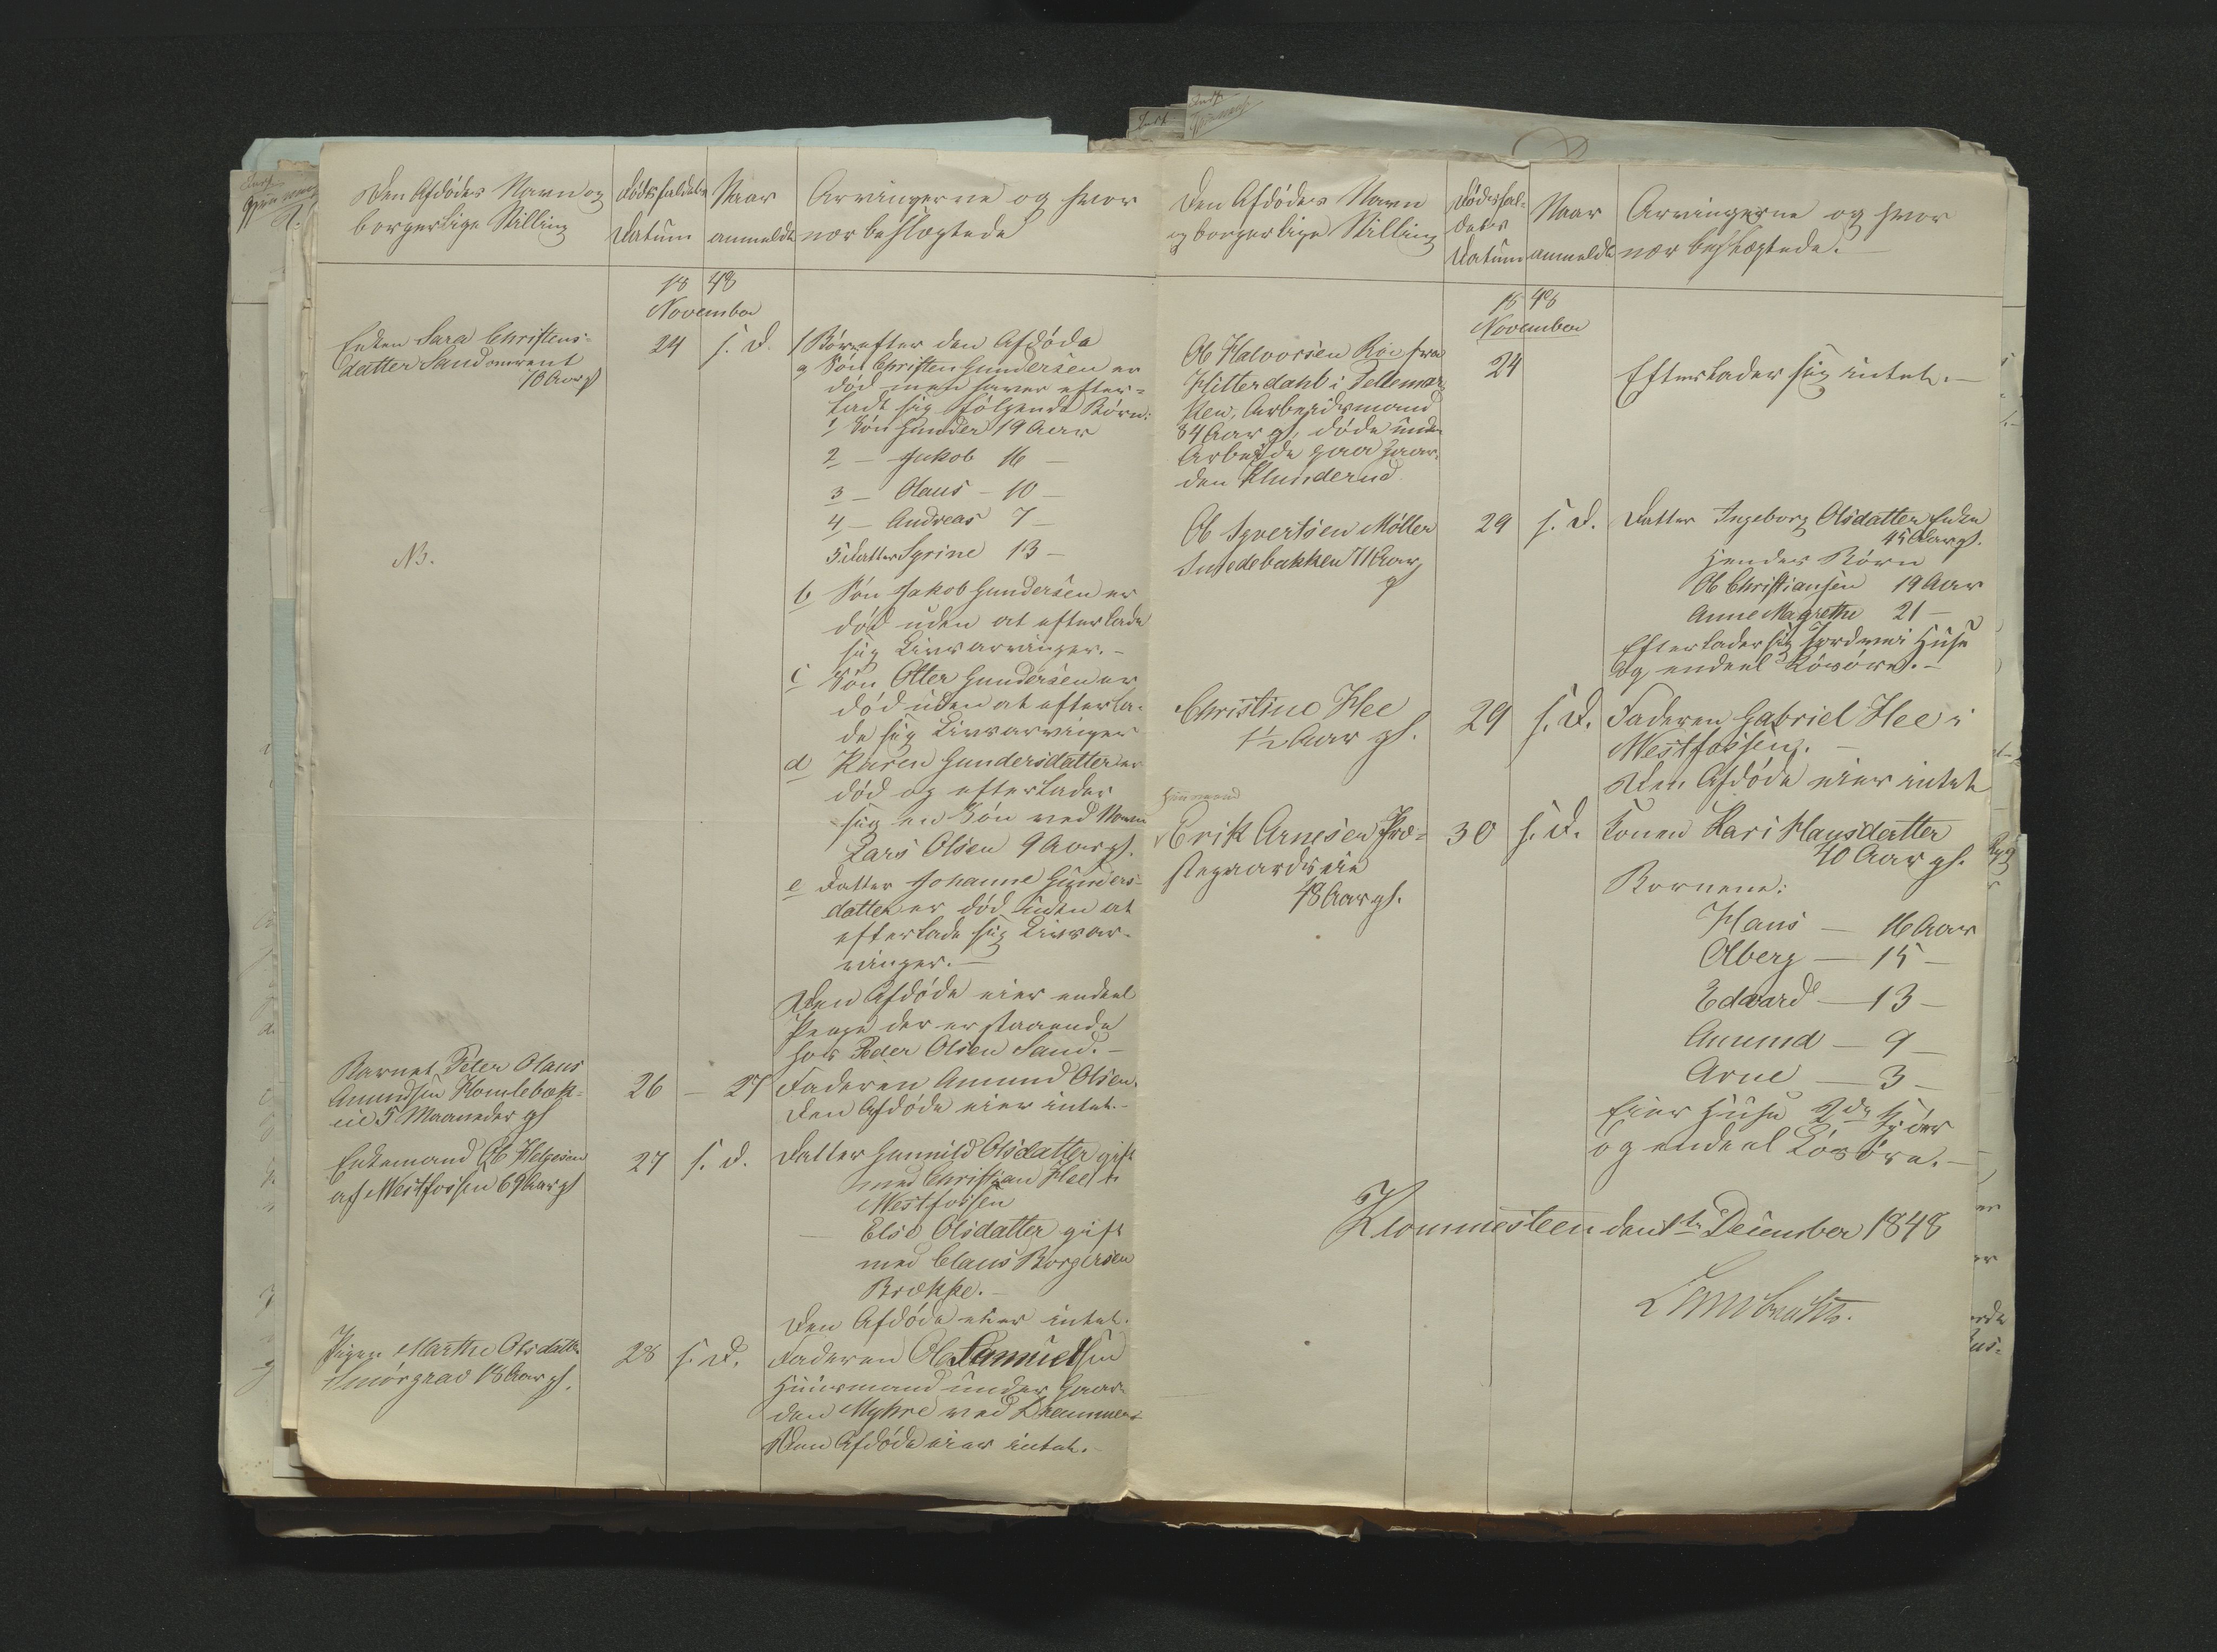 Den Afdødes Navn og
borgerlige Stilling
Dødsfaldets
Datum
Naar
anmeldt
Arvingerne og hvor
nær beslægtede
18 48
November
Enken Sara Christens-
datter Sand omtrent
70 Aar gl
24 s. D.
1 Børn efter den Afdøde
a Søn Christen Gundersen er
død men haver efter-
ladt sig følgende Børn:
1 Søn Gunder 19 Aar
2 — Jakob 16 —
3 — Olaus — 10 —
4 — Andreas 7 —
5 Datter Syrine 13 —
NB.
b Søn Jakob Gundersen er
død uden at efterlade
sig Livsarvinger. —
c Søn Otter Gundersen er
død uden at efterla-
de sig Livsarvinger
d Karen Gundersdatter er
død og efterlader
sig en Søn ved Navn
Lars Olsen 9 Aar gl.
e Datter Johanne Gunders-
datter er død uden at
efterlade sig Livsar-
vinger. —
Den Afdøde eier endeel
Penge der er staaende
hos Peder Olsen Sand. —
Barnet Peter Olaus
Amundsen Homlebæk-
eie 5 Maaneder gl
26 — 27
Faderen Amund Olsen.
Den Afdøde eier intet. —
Enkemand Ole Helgesen
af Westfossen 69 Aar gl
27 s. D.
Datter Gunnild Olsdatter gift
med Christian Flee i
Westfossen
— Else Olsdatter gift
med Claus Borgersen
Brække. —
Den Afdøde eier intet.
Pigen Marthe Olsdatter
Smørgrav 18 Aar gl.
28 s. D.
Faderen Ole Samuelsen
Huusmand under Gaar-
den Myhre ved Drammen
Den Afdøde eier intet.
Den Afdødes Navn
og borgerlige Stilling
Dødsfal-
dets
Datum
Naar
anmeldt
Arvingerne og hvor
nær beslægtede. —
18 48
November
Ole Halvorsen Roe fra
Hitterdahl i Tellemar-
ken, Arbeidsmand
34 Aar gl, døde under
Arbeide paa Gaar-
den Klunderud.
24
Efterlader sig intet. —
Ole Syvertsen Møller
Smedebakken 71 Aar
gl
29 s. D.
Datter Ingeborg Olsdatter Enke
45 Aar gl.
Hendes Børn
Ole Christiansen 19 Aar
Anne Magrethe 21 —
Efterlader sig Jordveis Huse
og endeel Løsøre. —
Christine Flee
1½ Aar gl.
29 s. D.
Faderen Gabriel Flee i
Westfossen. —
Den Afdøde eier intet
Huusmand
Erik Arnesen Præ-
stegaardseie
48 Aar gl.
30 s. D.
Konen Kari Hansdatter
40 Aar gl.
Børnene:
Hans — 16 Aar
Olberg — 15 —
Edvard — 13 —
Amund — 9 —
Arne — 3 —
Eier Huse 2de Kjøer
og endeel Løsøre. —
Krommesteen den 1te December 1848
Lambrechts.